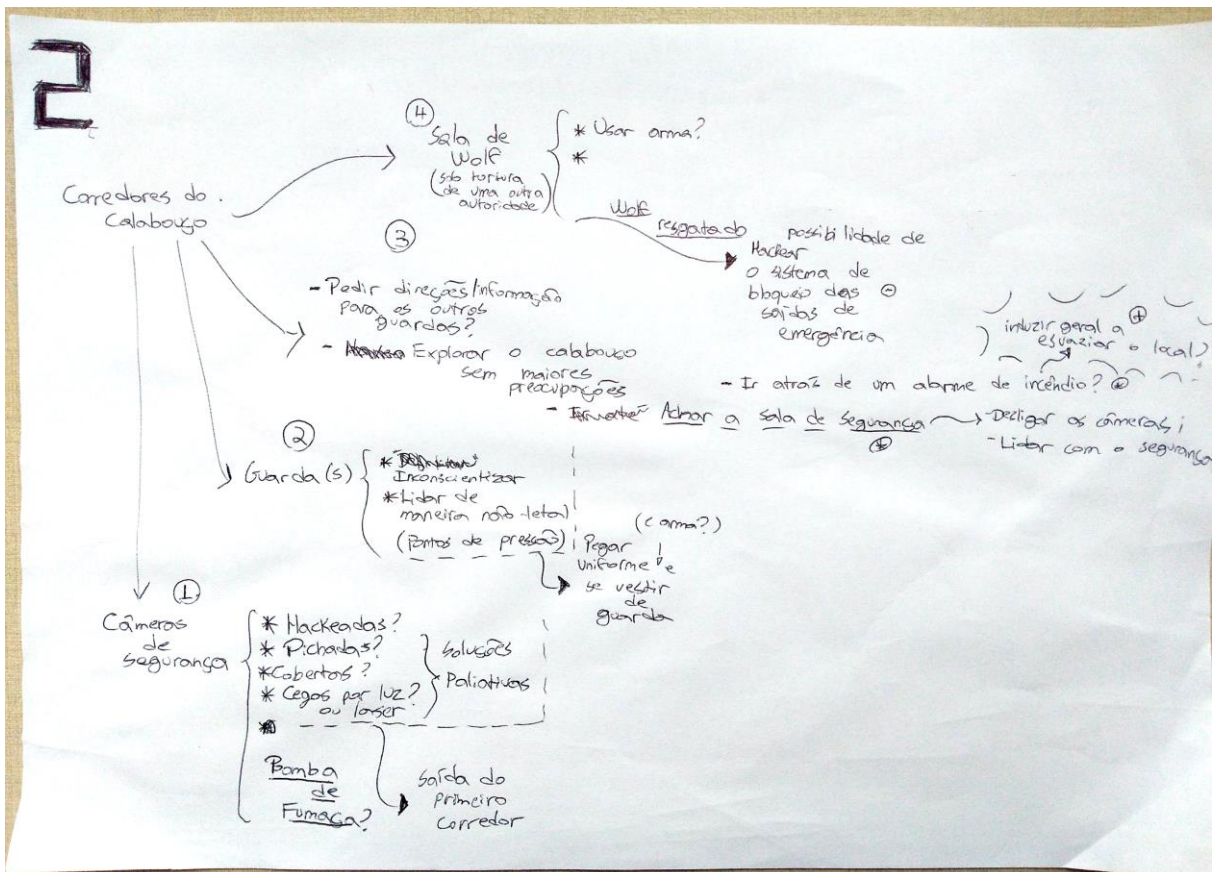 2
Corredores do
Calabouço
④
Sala de
Wolf
(sob tortura
de uma outra
autoridade)
* Usar arma?
*
Wolf
resgatado
possibilidade de
Hackear
o sistema de
bloqueio das ⊖
saídas de
emergência
③
- Pedir direções/informação
para os outros
guardas?
- Explorar o calabouço
sem maiores
preocupações
- Ir atrás de um alarme de incêndio? ⊕
induzir geral a ⊕
esvaziar o local
- Achar a sala de segurança
⊕
- Desligar as câmeras;
- Lidar com o segurança
②
Guarda(s)
* Inconscientizar
* Lidar de
maneira não-letal
(Pontos de pressão)
(e arma?)
Pegar
uniforme e
se vestir
de
guarda
①
Câmeras
de
segurança
* Hackeadas?
* Pichadas?
* Cobertas?
* Cegas por luz?
ou laser
Soluções
Paliativas
Bomba
de
Fumaça?
saída do
primeiro
corredor